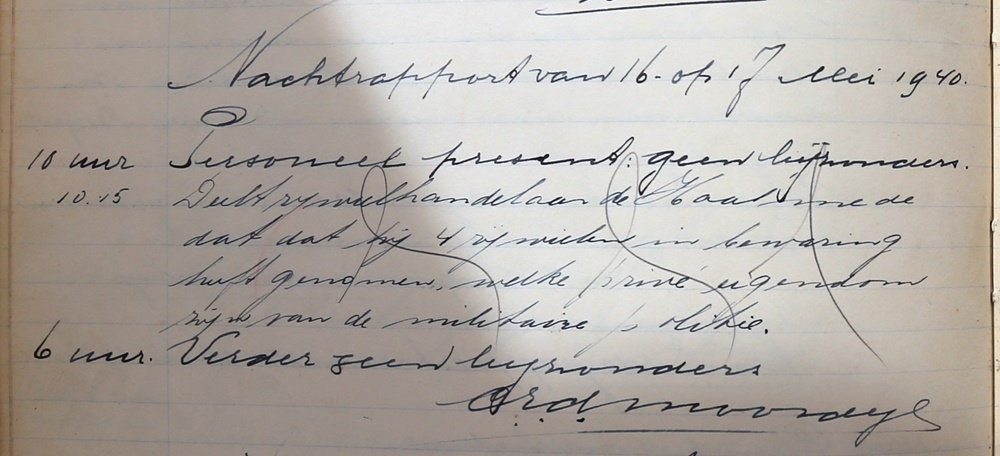 Nachtrapport van 16 op 17 Mei 1940.
10 uur Personeel present. geen bijzonders.
10.15 Deelt rijwielhandelaar de Haas mede
dat dat hij 4 rijwielen in bewaring
heeft genomen, welke privé eigendom
zijn van de militaire politie.
6 uur. Verder geen bijzonders